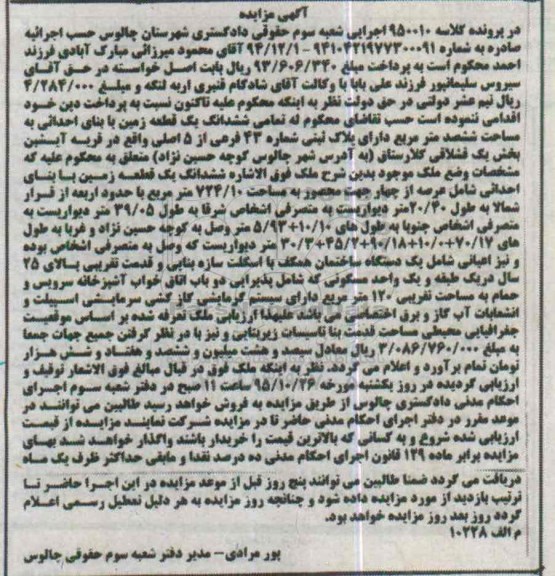 آگهی مزایده
در پرونده کلاسه ۹۵۰۰۱۰ اجرایی شعبه سوم حقوقی دادگستری شهرستان چالوس حسب اجرائیه
صادره به شماره ۹۴۱۰۴۲۱۹۷۷۳۰۰۰۹۱ - ۹۴/۱۲/۱ آقای محمود میرزائی مبارک آبادی فرزند
احمد محکوم است به پرداخت مبلغ ۹۳/۶۰۶/۳۴۰ ریال بابت اصل خواسته در حق آقای
سیروس سلیمانپور فرزند علی بابا با وکالت آقای شادکام قنبری اربه لنگه و مبلغ ۴/۲۸۴/۰۰۰
ریال نیم عشر دولتی در حق دولت نظر به اینکه محکوم علیه تاکنون نسبت به پرداخت دین خود
اقدامی ننموده است حسب تقاضای محکوم له تمامی ششدانگ یک قطعه زمین با بنای احداثی به
مساحت ششصد متر مربع دارای پلاک ثبتی شماره ۴۳ فرعی از ۵ اصلی واقع در قریه آیشبن
بخش یک قشلاقی کلارستاق (به آدرس شهر چالوس کوچه حسین نژاد) متعلق به محکوم علیه که
مشخصات وضع ملک موجود بدین شرح ملک فوق الاشاره ششدانگ یک قطعه زمین با بنای
احداثی شامل عرصه از چهار جهت محصور به مساحت ۷۲۴/۱۰ متر مربع با حدود اربعه از قرار
شمالا به طول ۲۰/۴۰ متر دیواریست به متصرفی اشخاص شرقا به طول ۳۹/۰۵ متر دیواریست به
متصرفی اشخاص جنوبا به طول های ۱۰/۱۰+۵/۹۳ متر وصل به کوچه حسین نژاد و غربا به طول
های ۷۰/۱۷+۱۰/۰+۹۰/۱۸+۴۵/۲+۳۰/۳ متر دیواریست که وصل به متصرفی اشخاص بوده
و نیز اعیانی شامل یک دستگاه ساختمان همکف با اسکلت سازه بنایی و قدمت تقریبی بالای ۲۵
سال دریک طبقه و یک واحد مسکونی که شامل پذیرایی دو باب اتاق خواب آشپزخانه سرویس و
حمام به مساحت تقریبی ۱۲۰ متر مربع دارای سیستم گرمایشی گاز کشی سرمایشی اسپیلت و
انشعابات آب گاز و برق اختصاصی می باشد علیهذا ارزیابی ملک تعرفه شده بر اساس موقعیت
جغرافیایی محیطی مساحت قدمت بنا تاسیسات زیربنایی و نیز با در نظر گرفتن جمیع جهات جمعا
به مبلغ ۳/۰۸۶/۷۶۰/۰۰۰ ریال معادل سیصد و هشت میلیون و ششصد و هفتاد و شش هزار
تومان تمام برآورد و اعلام می گردد. نظر به اینکه ملک فوق در قبال مبالغ فوق الاشعار توقیف و
ارزیابی گردیده در روز یکشنبه مورخه ۹۵/۱۰/۲۶ ساعت ۱۱ صبح در دفتر شعبه سوم اجرای
احکام مدنی دادگستری چالوس از طریق مزایده به فروش خواهد رسید طالبین می توانند در
موعد مقرر در دفتر اجرای احکام مدنی حاضر تا در مزایده شرکت نمایند مزایده از قیمت
ارزیابی شده شروع و به کسانی که بالاترین قیمت را خریدار باشند واگذار خواهد شد بهای
مزایده برابر ماده ۱۲۹ قانون اجرای احکام مدنی ده درصد نقدا و مابقی حداکثر ظرف یک ماه
دریافت می گردد ضمنا طالبین می توانند پنج روز قبل از موعد مزایده در این اجرا حاضر تا
ترتیب بازدید از مورد مزایده داده شود و چنانچه روز مزایده به هر دلیل تعطیل رسمی اعلام
گردد روز بعد روز مزایده خواهد بود.
م الف ۱۰۲۲۸
پور مرادی- مدیر دفتر شعبه سوم حقوقی چالوس